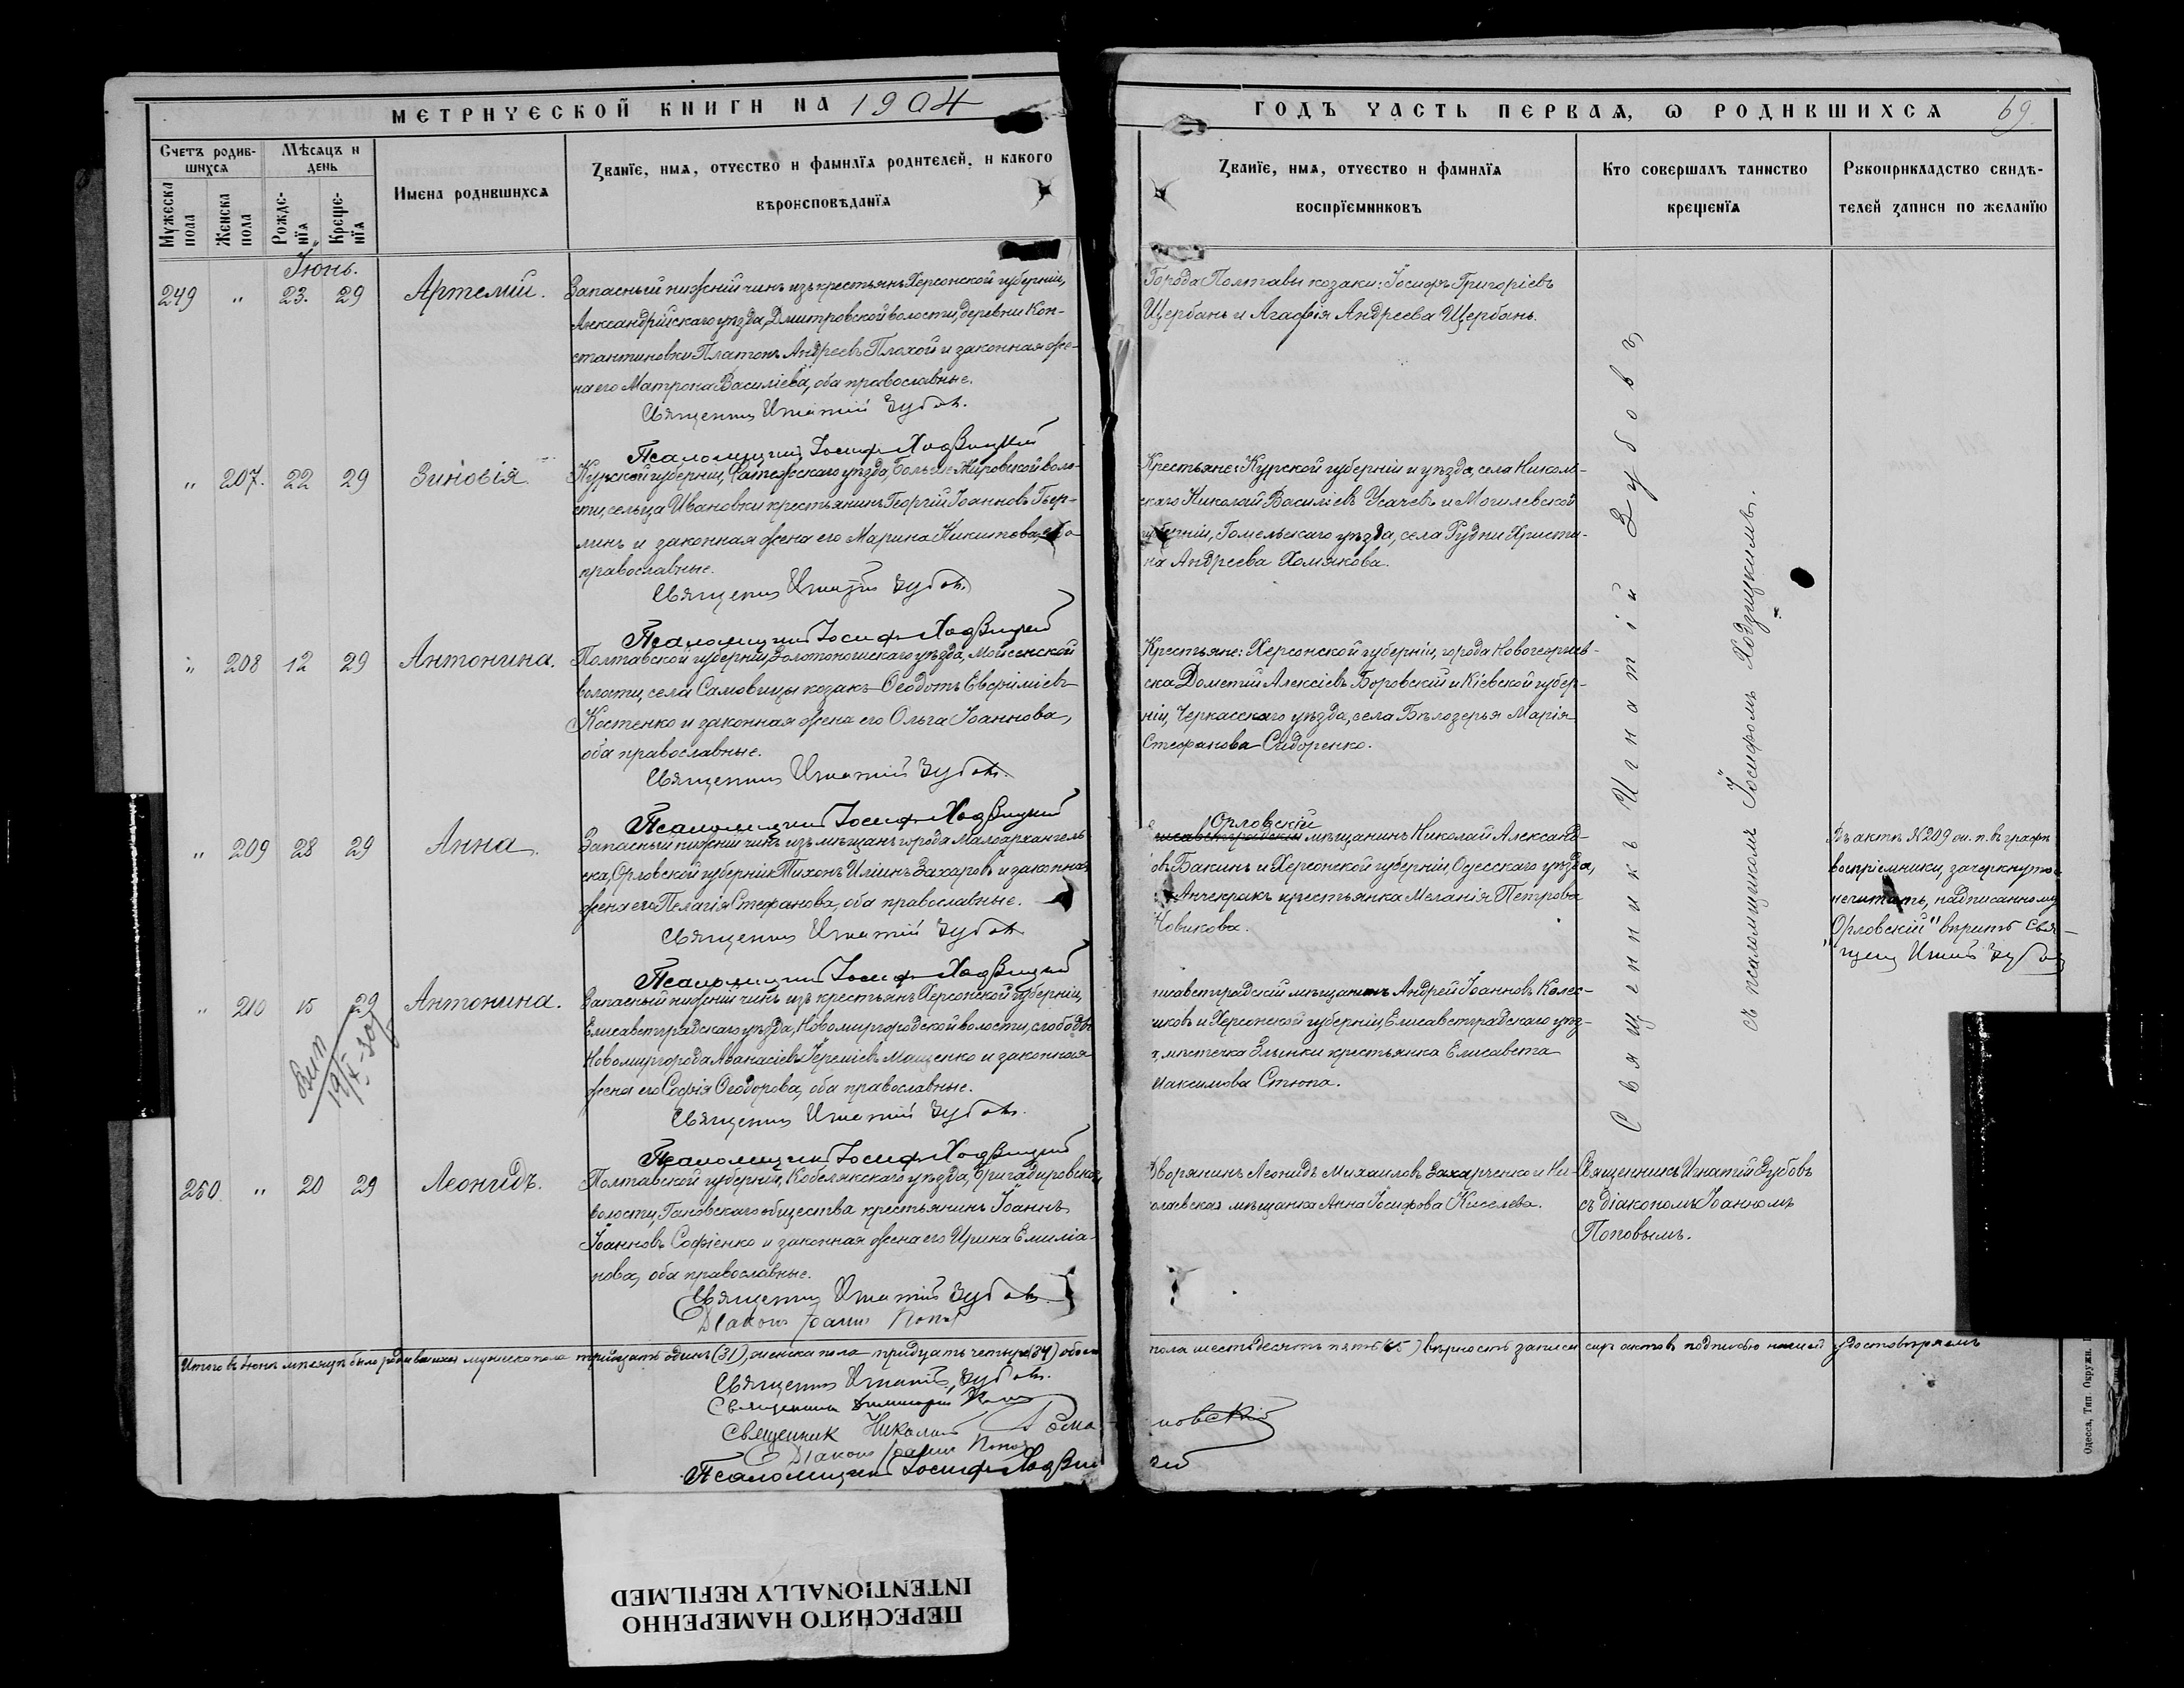 МЕТРИЧЕСКОЙ КНИГИ НА 1904
Счетъ родив-
шихся
Мѣсяцъ и
день
Мужеска
пола
Женска
пола
Рожде-
нія
Креще-
нія
Имена родившихся
Званіе, имя, отчество и фамилія родителей, и какого
вѣроисповѣданія
Іюнь.
249 „ 23. 29 Артемій.
Запасный нижній чинъ изъ крестьянъ Херсонской губерніи,
Александрійскаго уѣзда, Дмитровской волости, деревни Кон-
стантиновки Платонъ Андреевъ Плохой и законная же-
на его Матрона Василіева, оба православные.
Священникъ Игнатій Зубовъ.
Псаломщикъ Іосифъ Ходзицкій
„ 207. 22 29 Зиновія.
Курской губерніи, Фатежскаго уѣзда, Больше-Жировской воло-
сти, сельца Ивановки крестьянинъ Георгій Іоанновъ
и законная жена его Марина Никитова, оба
православные.
Священникъ Игнатій Зубовъ
Псаломщикъ Іосифъ Ходзицкій
„ 208 12 29 Антонина.
Полтавской губерніи, Золотоношскаго уѣзда, Мойсенской
волости, села Самовицы козакъ Ѳеодотъ Евфиміевъ
Костенко и законная жена его Ольга Іоаннова,
оба православные.
Священникъ Игнатій Зубовъ.
Псаломщикъ Іосифъ Ходзицкій
„ 209 28 29 Анна.
Запасный нижній чинъ изъ мѣщанъ города Малоархангель-
ска, Орловской губерніи Тихонъ Иліинъ Захаровъ и законная
жена его Пелагія Стефанова, оба православные.
Священникъ Игнатій Зубовъ
Псаломщикъ Іосифъ Ходзицкій
„ 210 15 29 Антонина.
Запасный нижній чинъ изъ крестьянъ Херсонской губерніи,
Елисаветградскаго уѣзда, Новомиргородской волости, слободы
Новомиргорода Аѳанасій Іереміевъ Мащенко и законная
жена его Софія Ѳеодорова, оба православные.
Священникъ Игнатій Зубовъ.
Псаломщикъ Іосифъ Ходзицкій
250. „ 20 29 Леонидъ.
Полтавской губерніи, Кобелякскаго уѣзда, Бригадировской
волости, Гановскаго общества крестьянинъ Іоаннъ
Іоанновъ Софіенко и законная жена его Ирина Емиліа-
нова, оба православные.
Священникъ Игнатій Зубовъ
Діаконъ Іоаннъ Поповъ
Итого въ іюнѣ мѣсяцѣ было родившихся мужеска пола тридцать одинъ (31), женска пола тридцать четыре (34) обоего
Священникъ Игнатій Зубовъ.
Священникъ Димитрій
Священник Николай Рома
Діаконъ Іоаннъ Поповъ
Псаломщикъ Іосифъ Ходзиц
ГОДЪ ЧАСТЬ ПЕРВАЯ, Ѡ РОДИВШИХСЯ 69.
Званіе, имя, отчество и фамилія
воспріемниковъ
Кто совершалъ таинство
крещенія
Рукоприкладство свидѣ-
телей записи по желанію
Города Полтавы козаки: Іосифъ Григоріевъ
Щербань и Агафія Андреева Щербань.
Крестьяне: Курской губерніи и уѣзда, села Николь-
скаго Николай Василіевъ Усачевъ и Могилевской
губерніи, Гомельскаго уѣзда, села Рудни Христи-
на Андреева Хомякова.
Крестьяне: Херсонской губерніи, города Новогеоргіев-
ска Дометій Алексіевъ Боровскій и Кіевской губер-
ніи, Черкасскаго уѣзда, села Бѣлозерья Марія
Стефанова Сидоренко.
Орловскій
исаветградскій мѣщанинъ Николай Александ-
овъ Бакинъ и Херсонской губерніи, Одесскаго уѣзда,
Анчекракъ крестьянка Меланія Петрова
Новикова.
исаветградскій мѣщанинъ Андрей Іоанновъ Колес-
иковъ и Херсонской губерніи, Елисаветградскаго уѣз-
а, мѣстечка Злынки крестьянка Елисавета
Максимова Стюпа.
Дворянинъ Леонидъ Михаиловъ Захарченко и Ни-
олаевская мѣщанка Анна Іосифова Киселева.
Священникъ Игнатій Зубовъ
съ псаломщикомъ Іосифомъ Ходзицкимъ.
Священникъ Игнатій Зубовъ
съ діакономъ Іоанномъ
Поповымъ.
Въ актѣ № 209 ж. п. въ графѣ
воспріемники, зачеркнутое
не читать, надписанному
„Орловскій" вѣрить Свя-
щен Игнат Зубовъ
пола шестьдесятъ пять (65) вѣрность записи сихъ актовъ подписью нашей удостовѣряемъ
новскій
кій
Одесса, Тип. Окружн.
ПЕРЕСНЯТО НАМЕРЕННО
INTENTIONALLY REFILMED